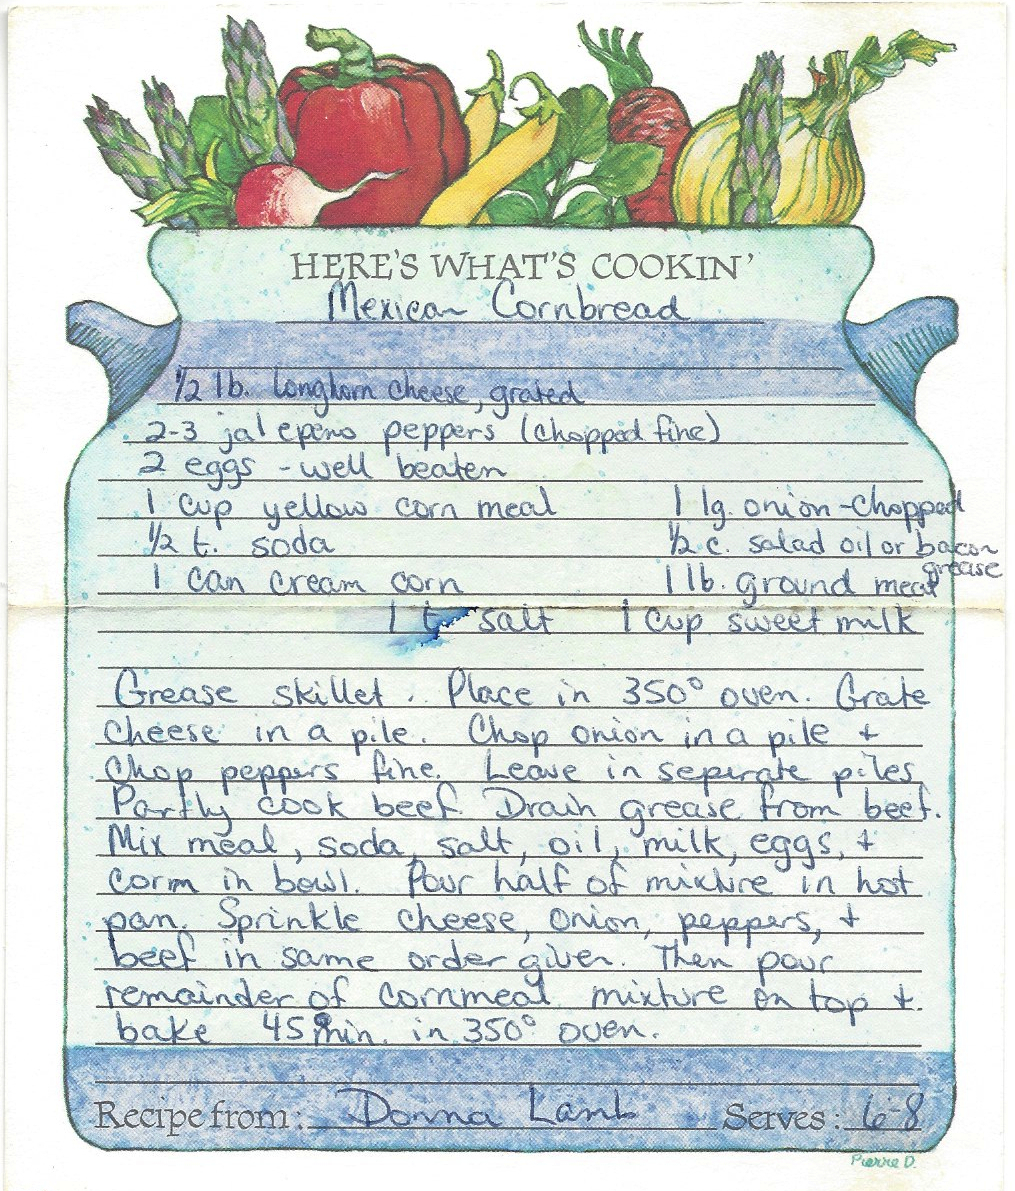 HERE'S WHAT'S COOKIN'
Mexican Cornbread
1/2 lb. longhorn cheese, grated
2-3 jalepeno peppers (chopped fine)
2 eggs - well beaten
1 cup yellow corn meal 1 lg. onion - chopped
1/2 t. soda 1/2 c. salad oil or bacon
grease
1 can cream corn 1 lb. ground meat
1 t. salt 1 cup sweet milk
Grease skillet. Place in 350° oven. Grate
cheese in a pile. Chop onion in a pile +
Chop peppers fine. Leave in seperate piles
Partly cook beef. Drain grease from beef.
Mix meal, soda, salt, oil, milk, eggs, +
corm in bowl. Pour half of mixture in hot
pan. Sprinkle cheese, onion, peppers, +
beef in same order given. Then pour
remainder of cornmeal mixture on top +
bake 45 min. in 350° oven.
Recipe from: Donna Lamb Serves: 6-8
Pierre D.